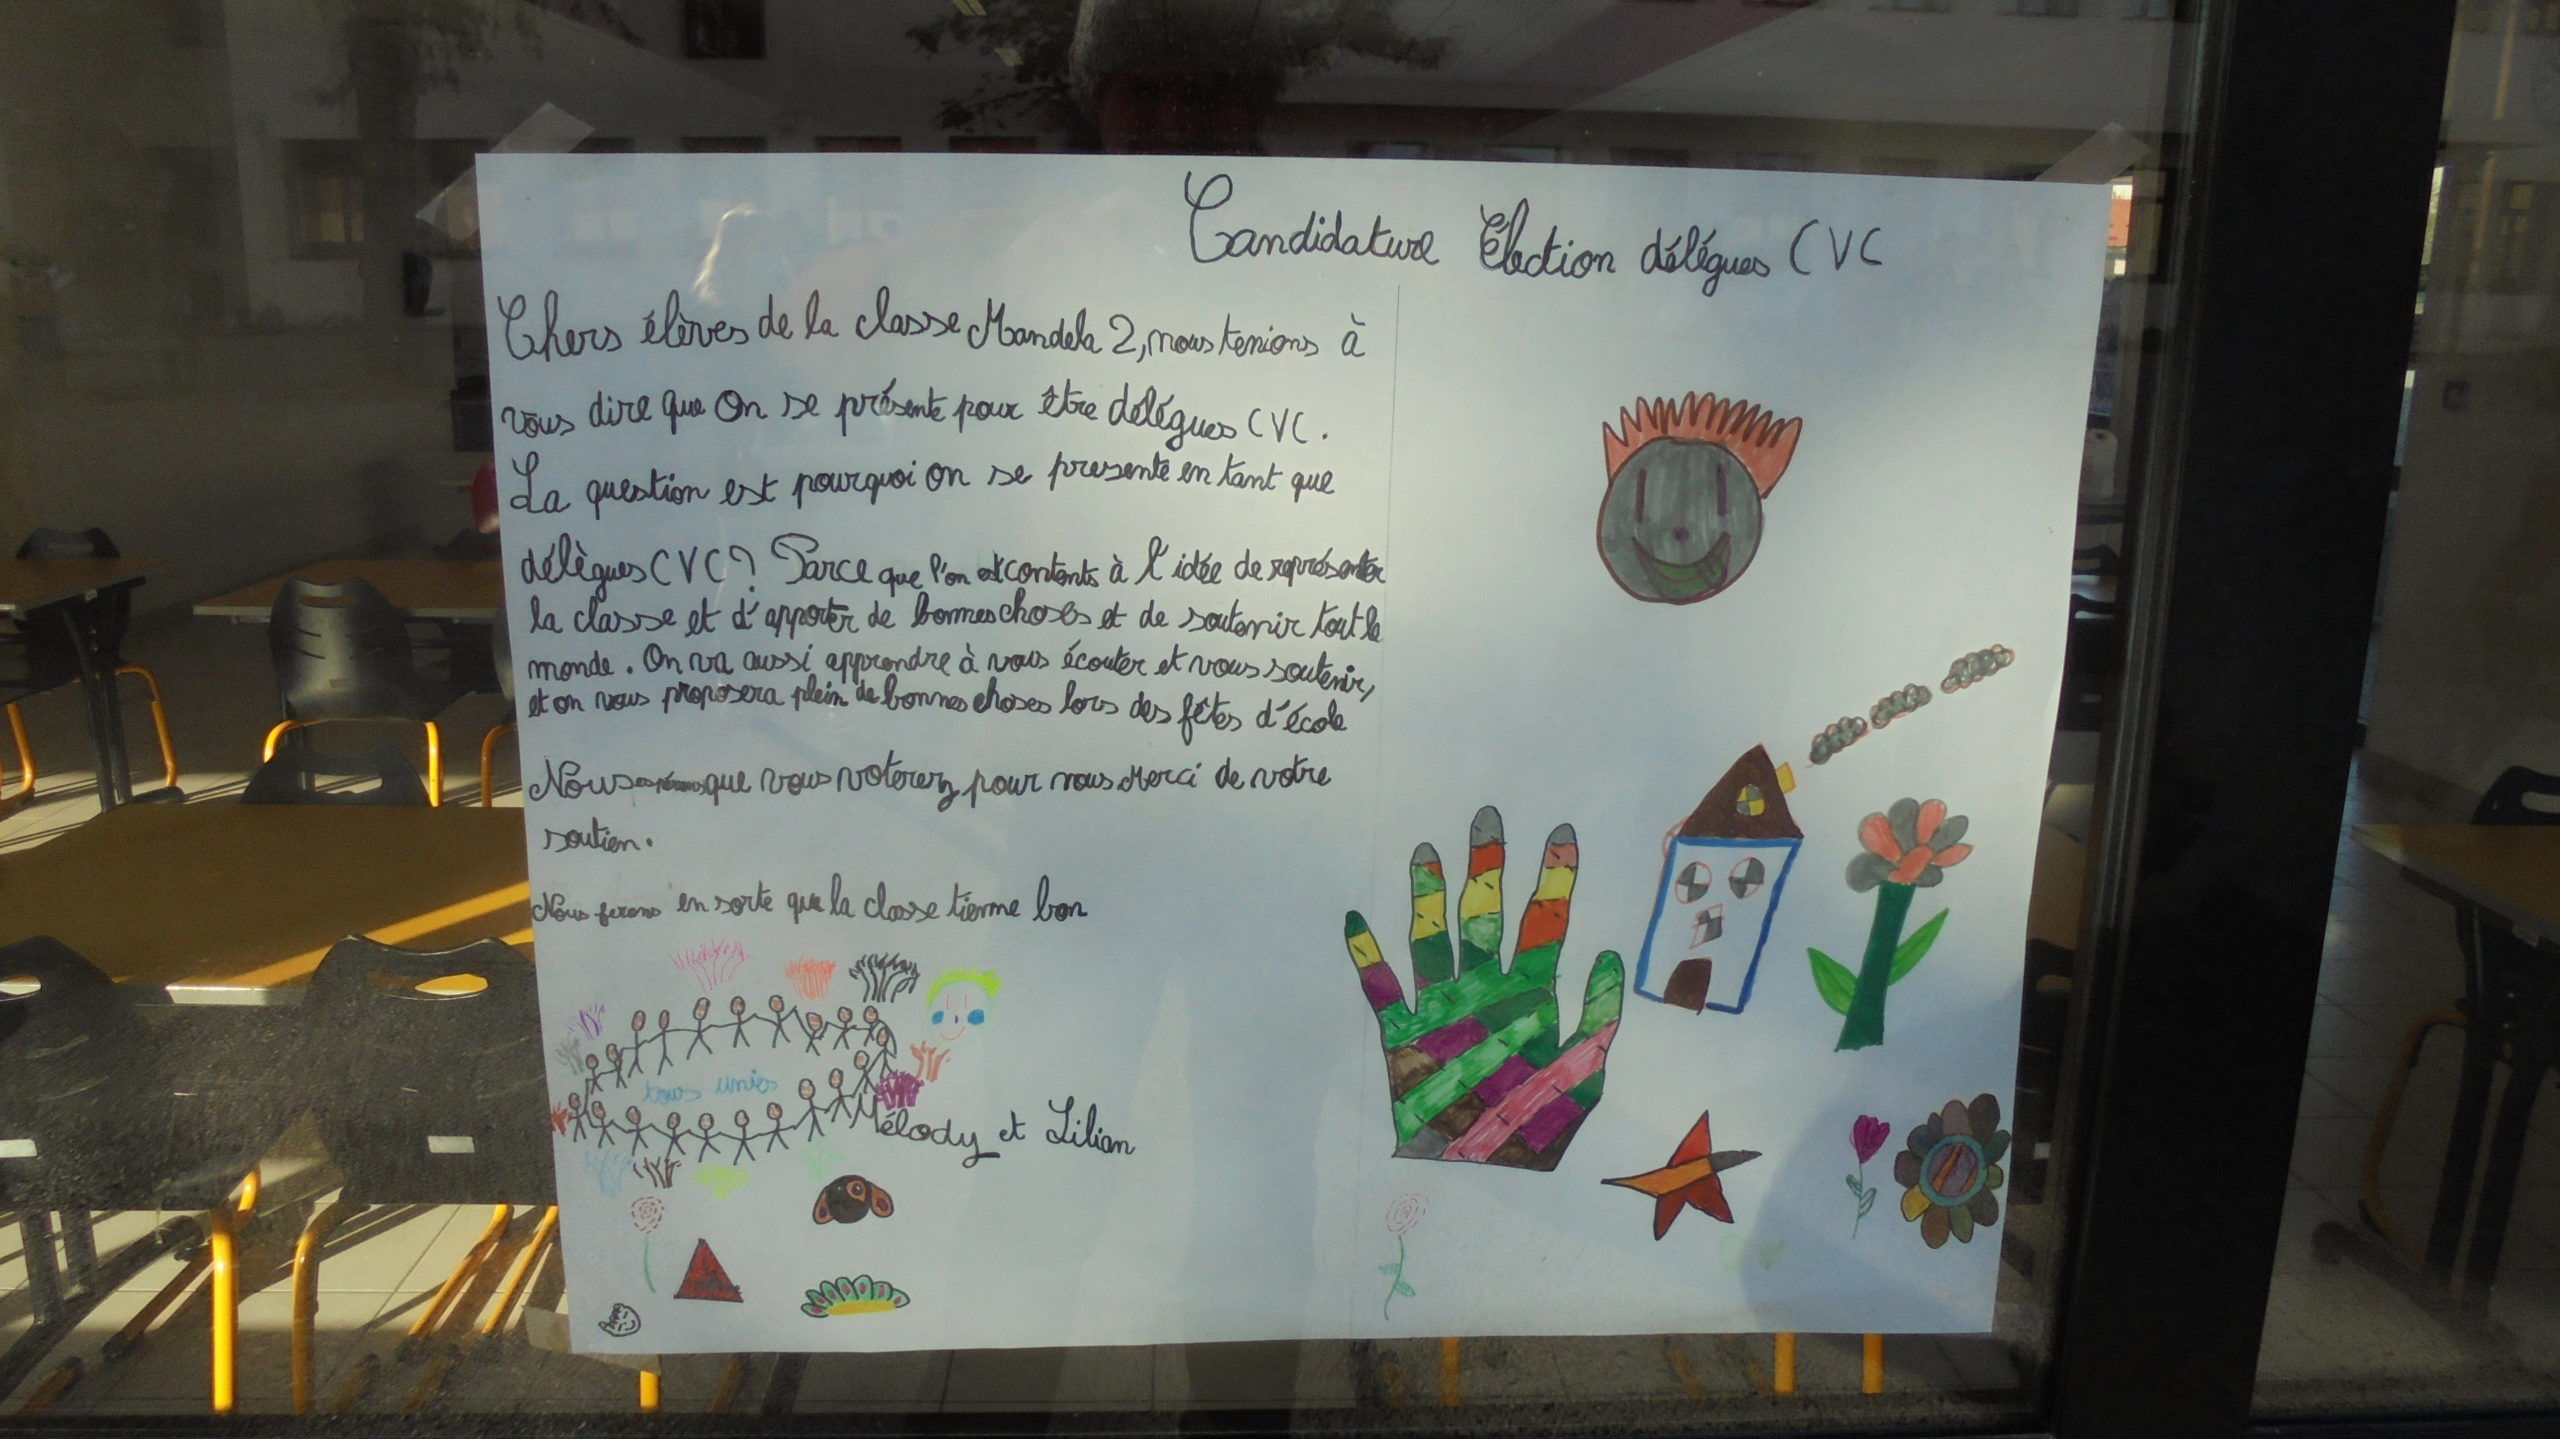 Candidature Élection délégues CVC
Chers élèves de la classe Mandela 2, nous tenions à
vous dire que On se présente pour être délégues CVC.
La question est pourquoi on se presente en tant que
délègues CVC? Parce que l'on est contents à l'idée de représenter
la classe et d'apporter de bonnes choses et de soutenir tout le
monde. On va aussi apprendre à vous écouter et vous soutenir,
et on vous proposera plein de bonnes choses lors des fêtes d'école
Nous espérons que vous voterez pour nous Merci de votre
soutien.
Nous ferons en sorte que la classe tienne bon
tous unies
Mélody et Lilian